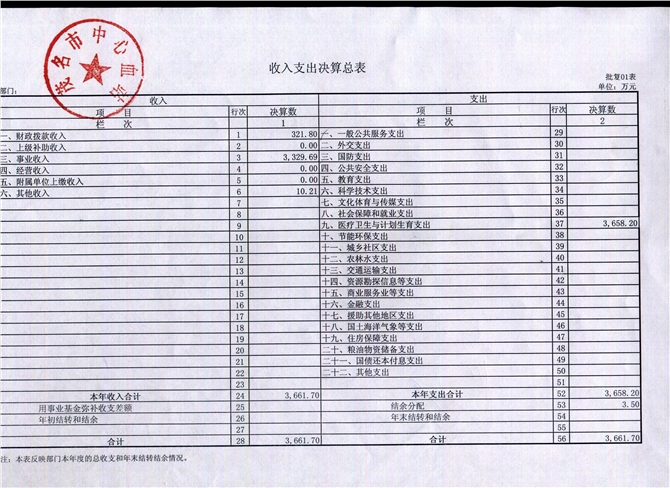 茂名市中心血站
收入支出决算总表
批复01表
部门： 单位：万元
收入 支出
项 目 行次 决算数 项 目 行次 决算数
栏 次 1 栏 次 2
一、财政拨款收入 1 321.80 一、一般公共服务支出 29
二、上级补助收入 2 0.00 二、外交支出 30
三、事业收入 3 3,329.69 三、国防支出 31
四、经营收入 4 0.00 四、公共安全支出 32
五、附属单位上缴收入 5 0.00 五、教育支出 33
六、其他收入 6 10.21 六、科学技术支出 34
7 七、文化体育与传媒支出 35
8 八、社会保障和就业支出 36
9 九、医疗卫生与计划生育支出 37 3,658.20
10 十、节能环保支出 38
11 十一、城乡社区支出 39
12 十二、农林水支出 40
13 十三、交通运输支出 41
14 十四、资源勘探信息等支出 42
15 十五、商业服务业等支出 43
16 十六、金融支出 44
17 十七、援助其他地区支出 45
18 十八、国土海洋气象等支出 46
19 十九、住房保障支出 47
20 二十、粮油物资储备支出 48
21 二十一、国债还本付息支出 49
22 二十二、其他支出 50
23 51
本年收入合计 24 3,661.70 本年支出合计 52 3,658.20
用事业基金弥补收支差额 25 结余分配 53 3.50
年初结转和结余 26 年末结转和结余 54
27 55
合计 28 3,661.70 合计 56 3,661.70
注：本表反映部门本年度的总收支和年末结转结余情况。